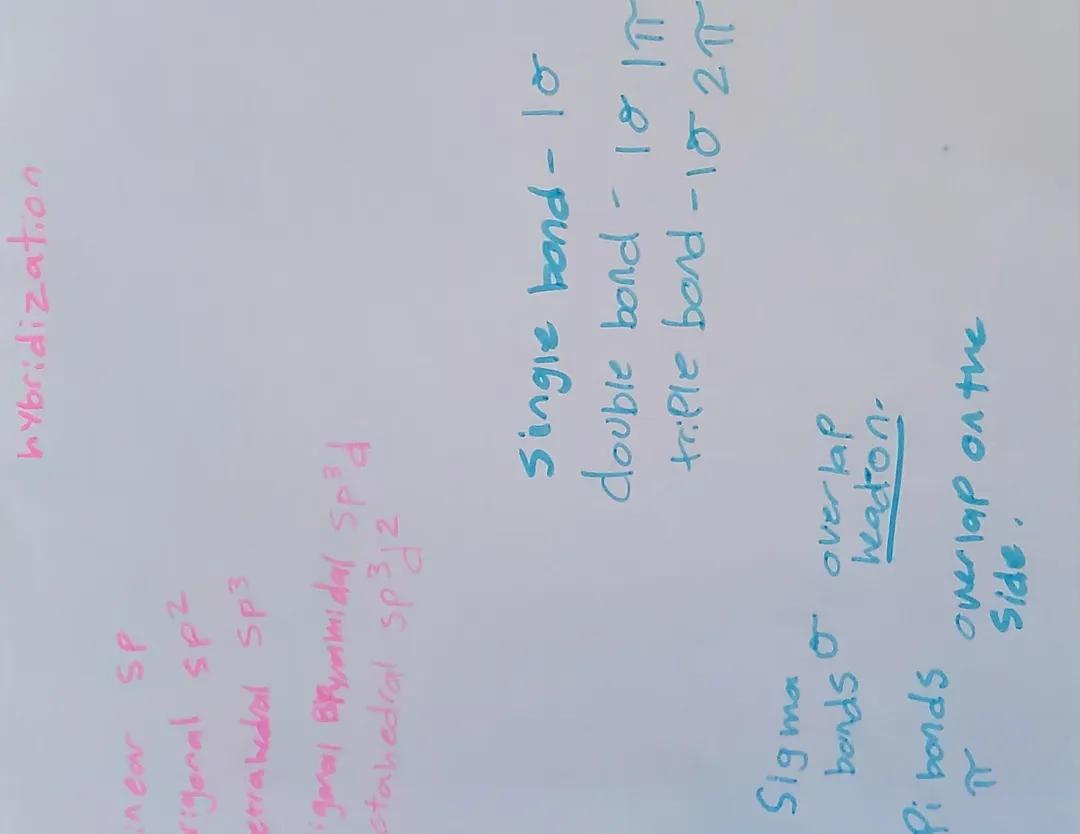 hybridization
inear sp
rigonal sp2
etrahedral sp3
igonal sp3d
ctahedral sp3d2
Single bond - 1σ
double bond - 1σ 1π
triple bond - 1σ 2π
Sigma bonds σ overlap
head on.
Pi bonds π overlap on the
Side.